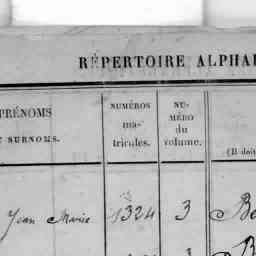 RÉPERTOIRE ALPHA
PRÉNOMS
ET SURNOMS.
NUMÉROS
ma-
tricules.
NU-
MÉRO
du
volume.
(Il doit
Jean Marie 1324 3 Be
3 B